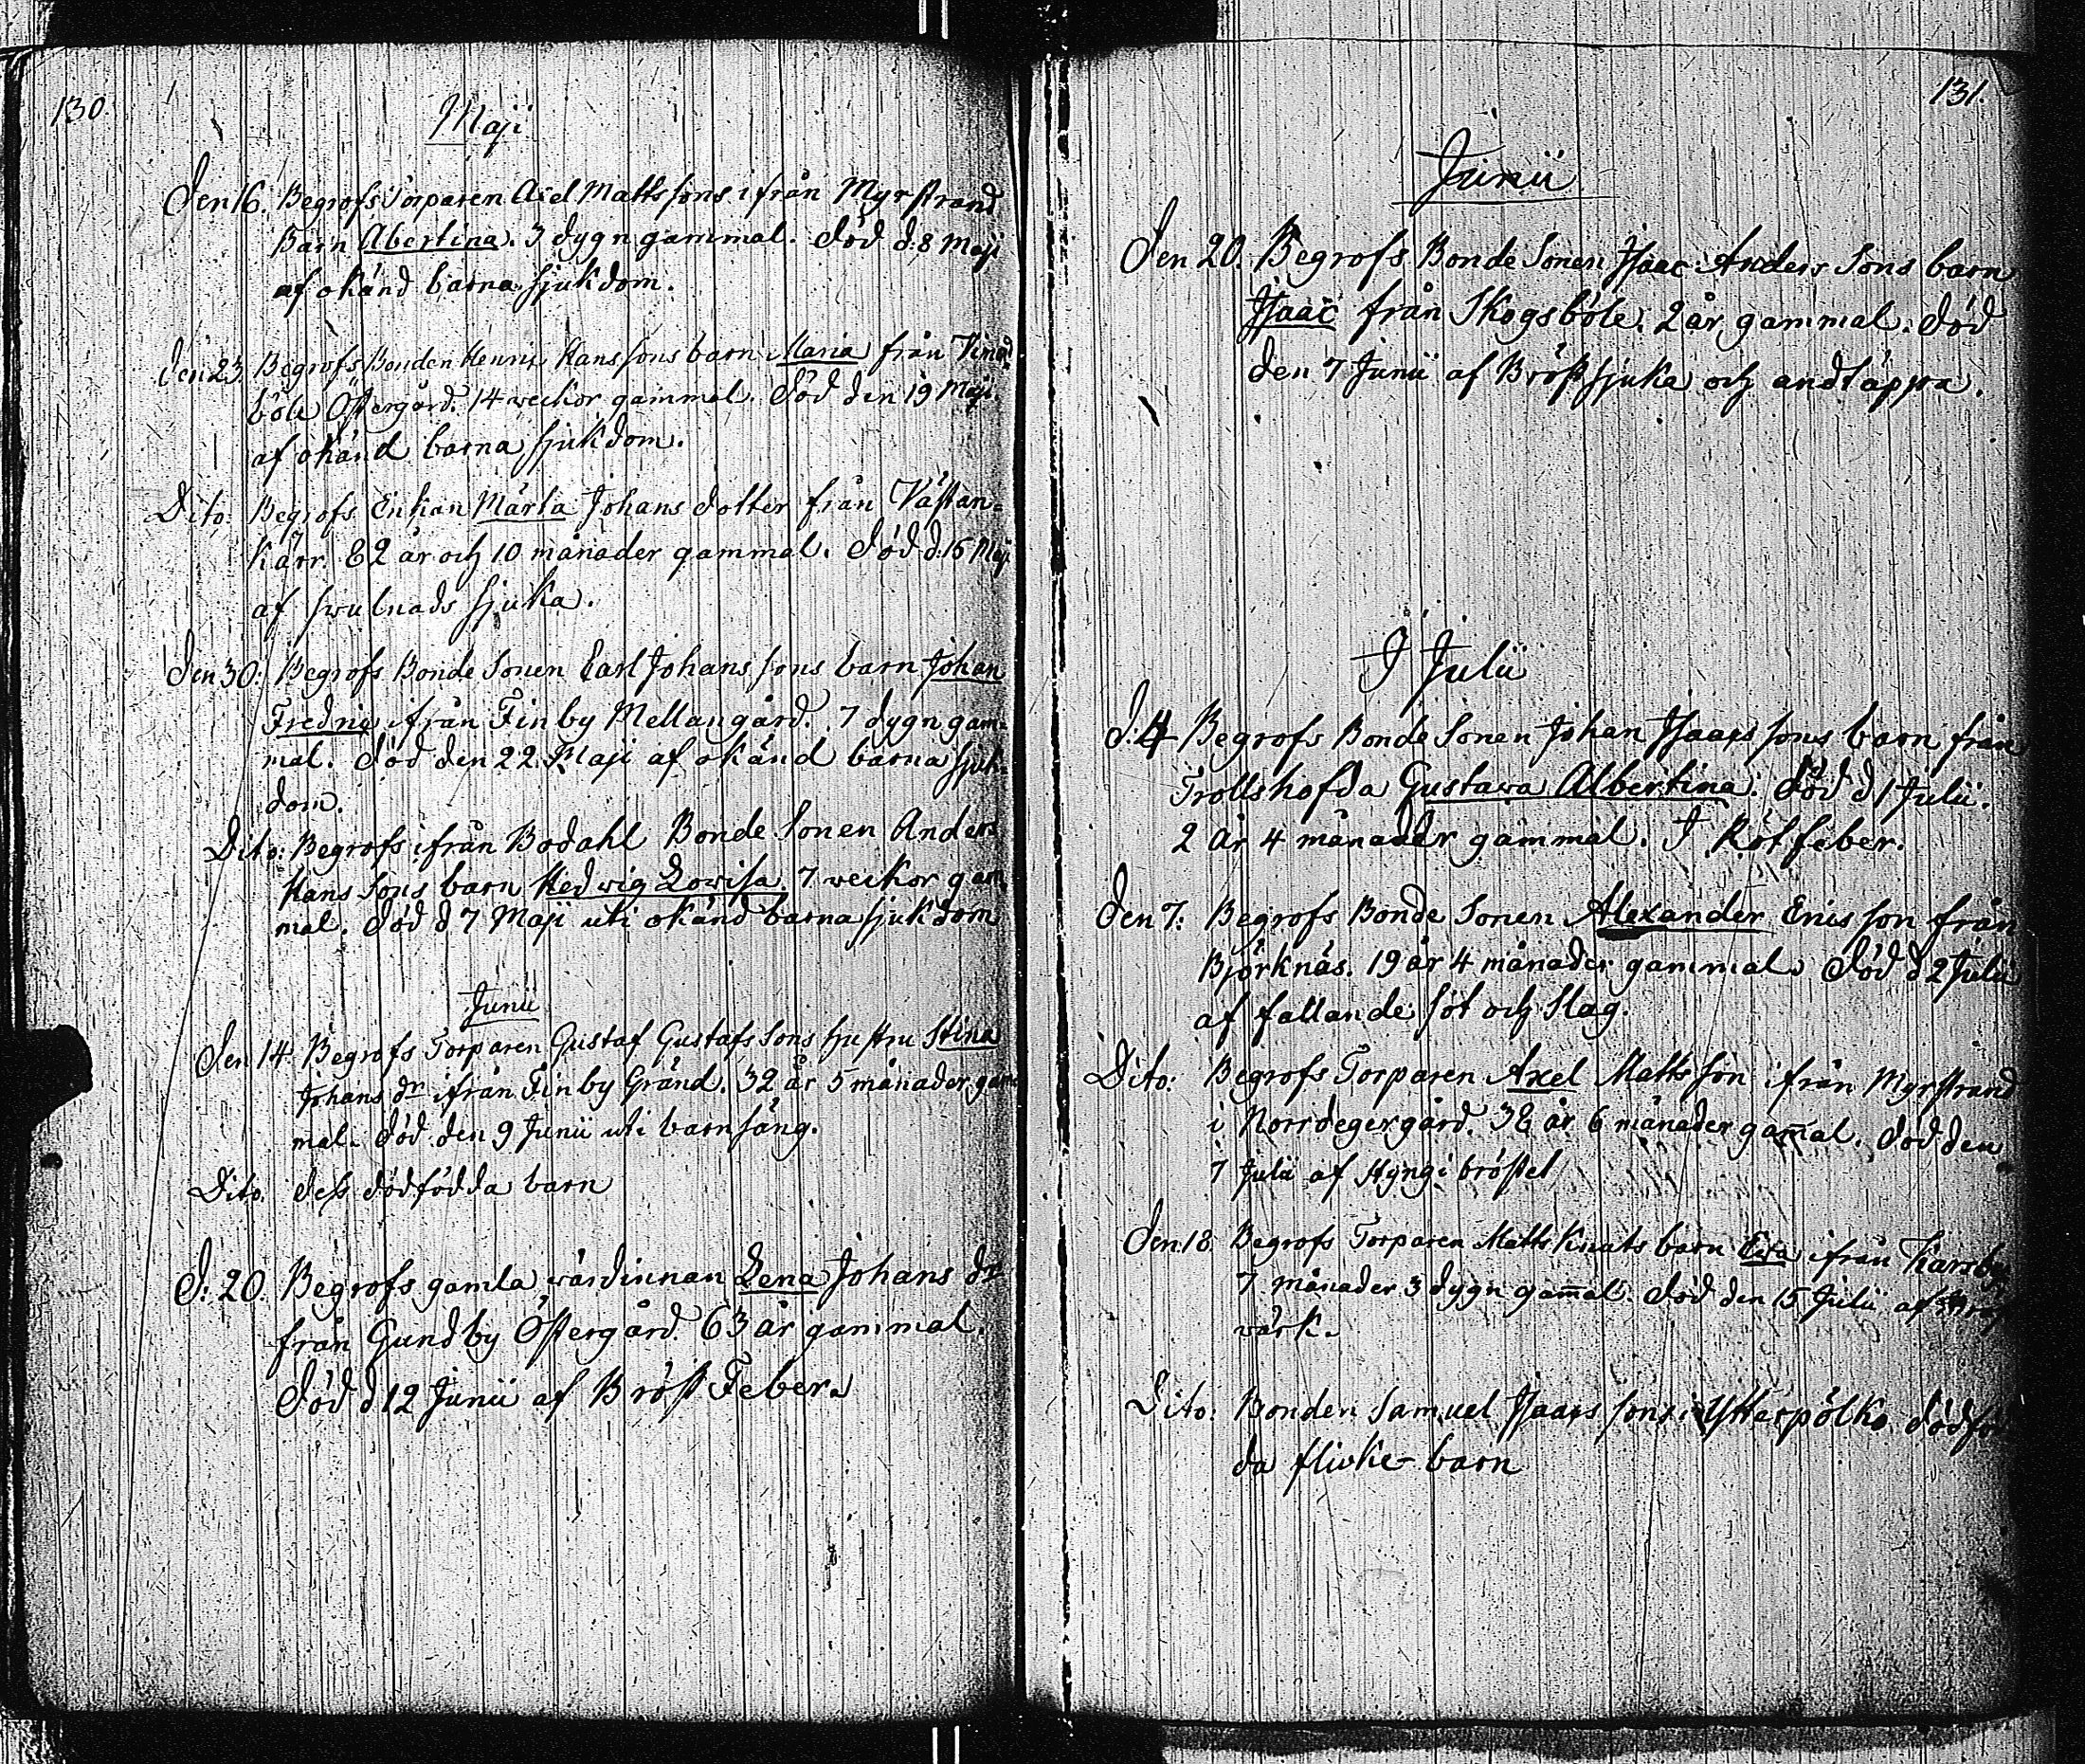 130
Maji
Den 16. Begrofs Torparen Axel Mattssons ifrån Myrstrand
Barn Abertina. 3 dygn gammal. Död d. 8 Maji
af okänd barna sjukdom.
Den 23. Begrofs Bonden Henric Hanssons barn Maria från Vined
böle Östergård. 14 veckor gammal. Död den 19 Maji
af okänd barna sjukdom.
Dito. Begrofs Enkan Märta Johans dotter från Västan-
kärr. 82 år och 10 månader gammal. Död d. 16 Maj
af swulnads sjuka.
Den 30. Begrofs Bonde Sonen Carl Johans sons barn Johan
Fredric ifrån Finby Mellangård. 7 dygn gam-
mal. Död den 22 Maji af okänd barna sjuk-
dom.
Dito: Begrofs ifrån Bodahl Bonde Sonen Anders
Hans Sons barn Hedwig Lowisa. 7 veckor gam
mal. Död d 7 Maji uti okänd barna sjukdom
Junii
Den 14. Begrofs Torparen Gustaf Gustafs Sons hustru Stina
Johans dr ifrån Finby Gränd. 32 år 5 månader gam
mal. Död den 9 Junii uti barnsäng.
Dito. dess dödfödda barn
D: 20. Begrofs gamla värdinnan Lena Johans dr
från Gundby Östergård. 63 år gammal.
Död d 12 Junii af Bröst Feber.
131.
Junii
Den 20. Begrofs Bonde Sonen Isaac Anders Sons barn
Isaac från Skogsböle. 2 år gammal. Död
den 7 Junii af Bröstsjuka och andtäppa.
I Julii
D. 4 Begrofs Bonde Sonen Johan Isaacs sons barn från
Trollshofda Gustava Albertina. Död d 1 Julii.
2 år 4 månader gammal. I Rötfeber.
Den 7: Begrofs Bonde Sonen Alexander Ericsson från
Björknäs. 19 år 4 månader gammal. Död d 2 Julii
af fallande sot och Slag.
Dito: Begrofs Torparen Axel Matts son ifrån Myrstrand
i Norrdegergård. 38 år 6 månader gam̅al. Död den
7 Julii af styng i bröstet
Den 18. Begrofs Torparen Matts Knuts barn Eva ifrån Karsby
7 månader 3 dygn gam̅al. Död den 15 Julii af
värk.
Dito: Bonden Samuel Isaacs sons i Ytterpölks dödföd
da flicke-barn